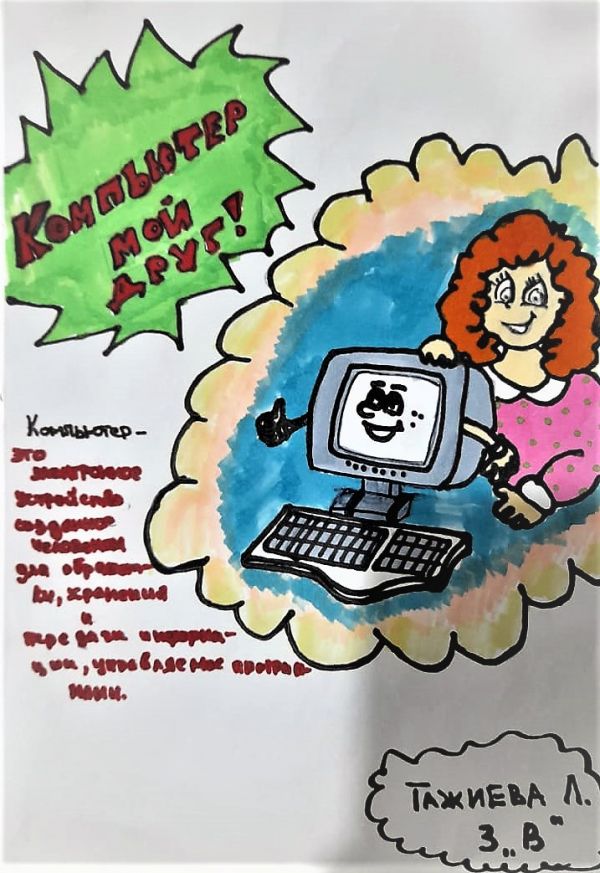 Компьютер
мой
друг!
Компьютер-
это
электронное
устройство
созданное
человеком
для обработ-
ки, хранения
и
передачи информа-
ции, управляемое програм-
мами.
Тажиева Л.
3 „В"